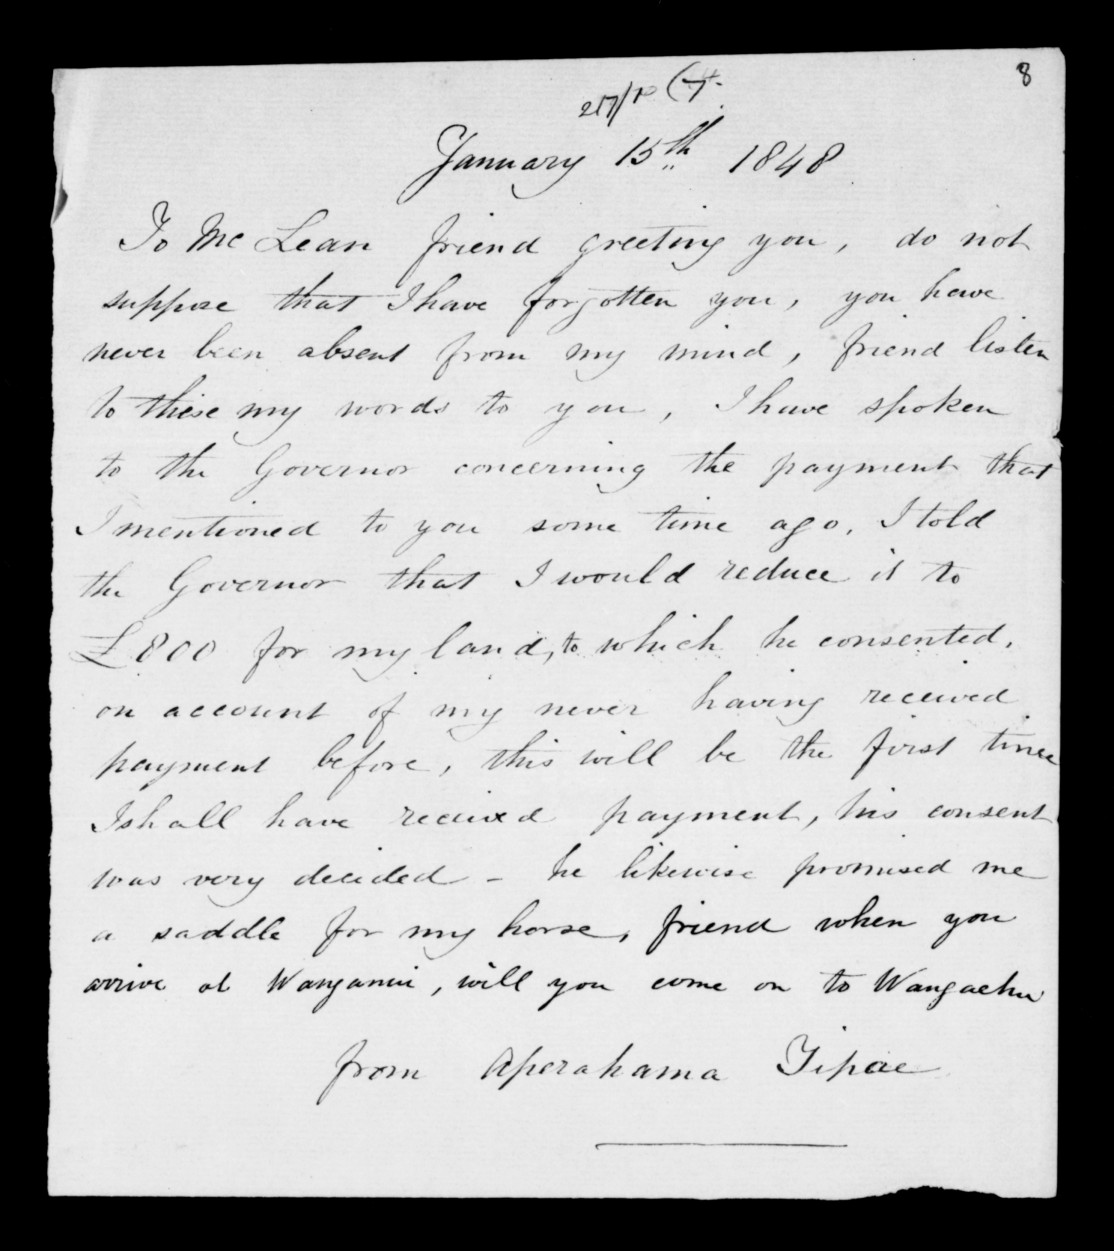 8
January 15th 1848
To Mc Lean friend greeting you, do not
suppose that I have forgotten you, you have
never been absent from my mind, friend listen
to these my words to you, I have spoken
to the Governor concerning the payment that
I mentioned to you some time ago, I told
the Governor that I would reduce it to
£800 for my land, to which he consented,
on account of my never having received
payment before, this will be the first time
I shall have received payment, his consent
was very decided - he likewise promised me
a saddle for my horse, friend when you
arrive at Wanganui, will you come on to Wangaehu
from Aperahama Tipae